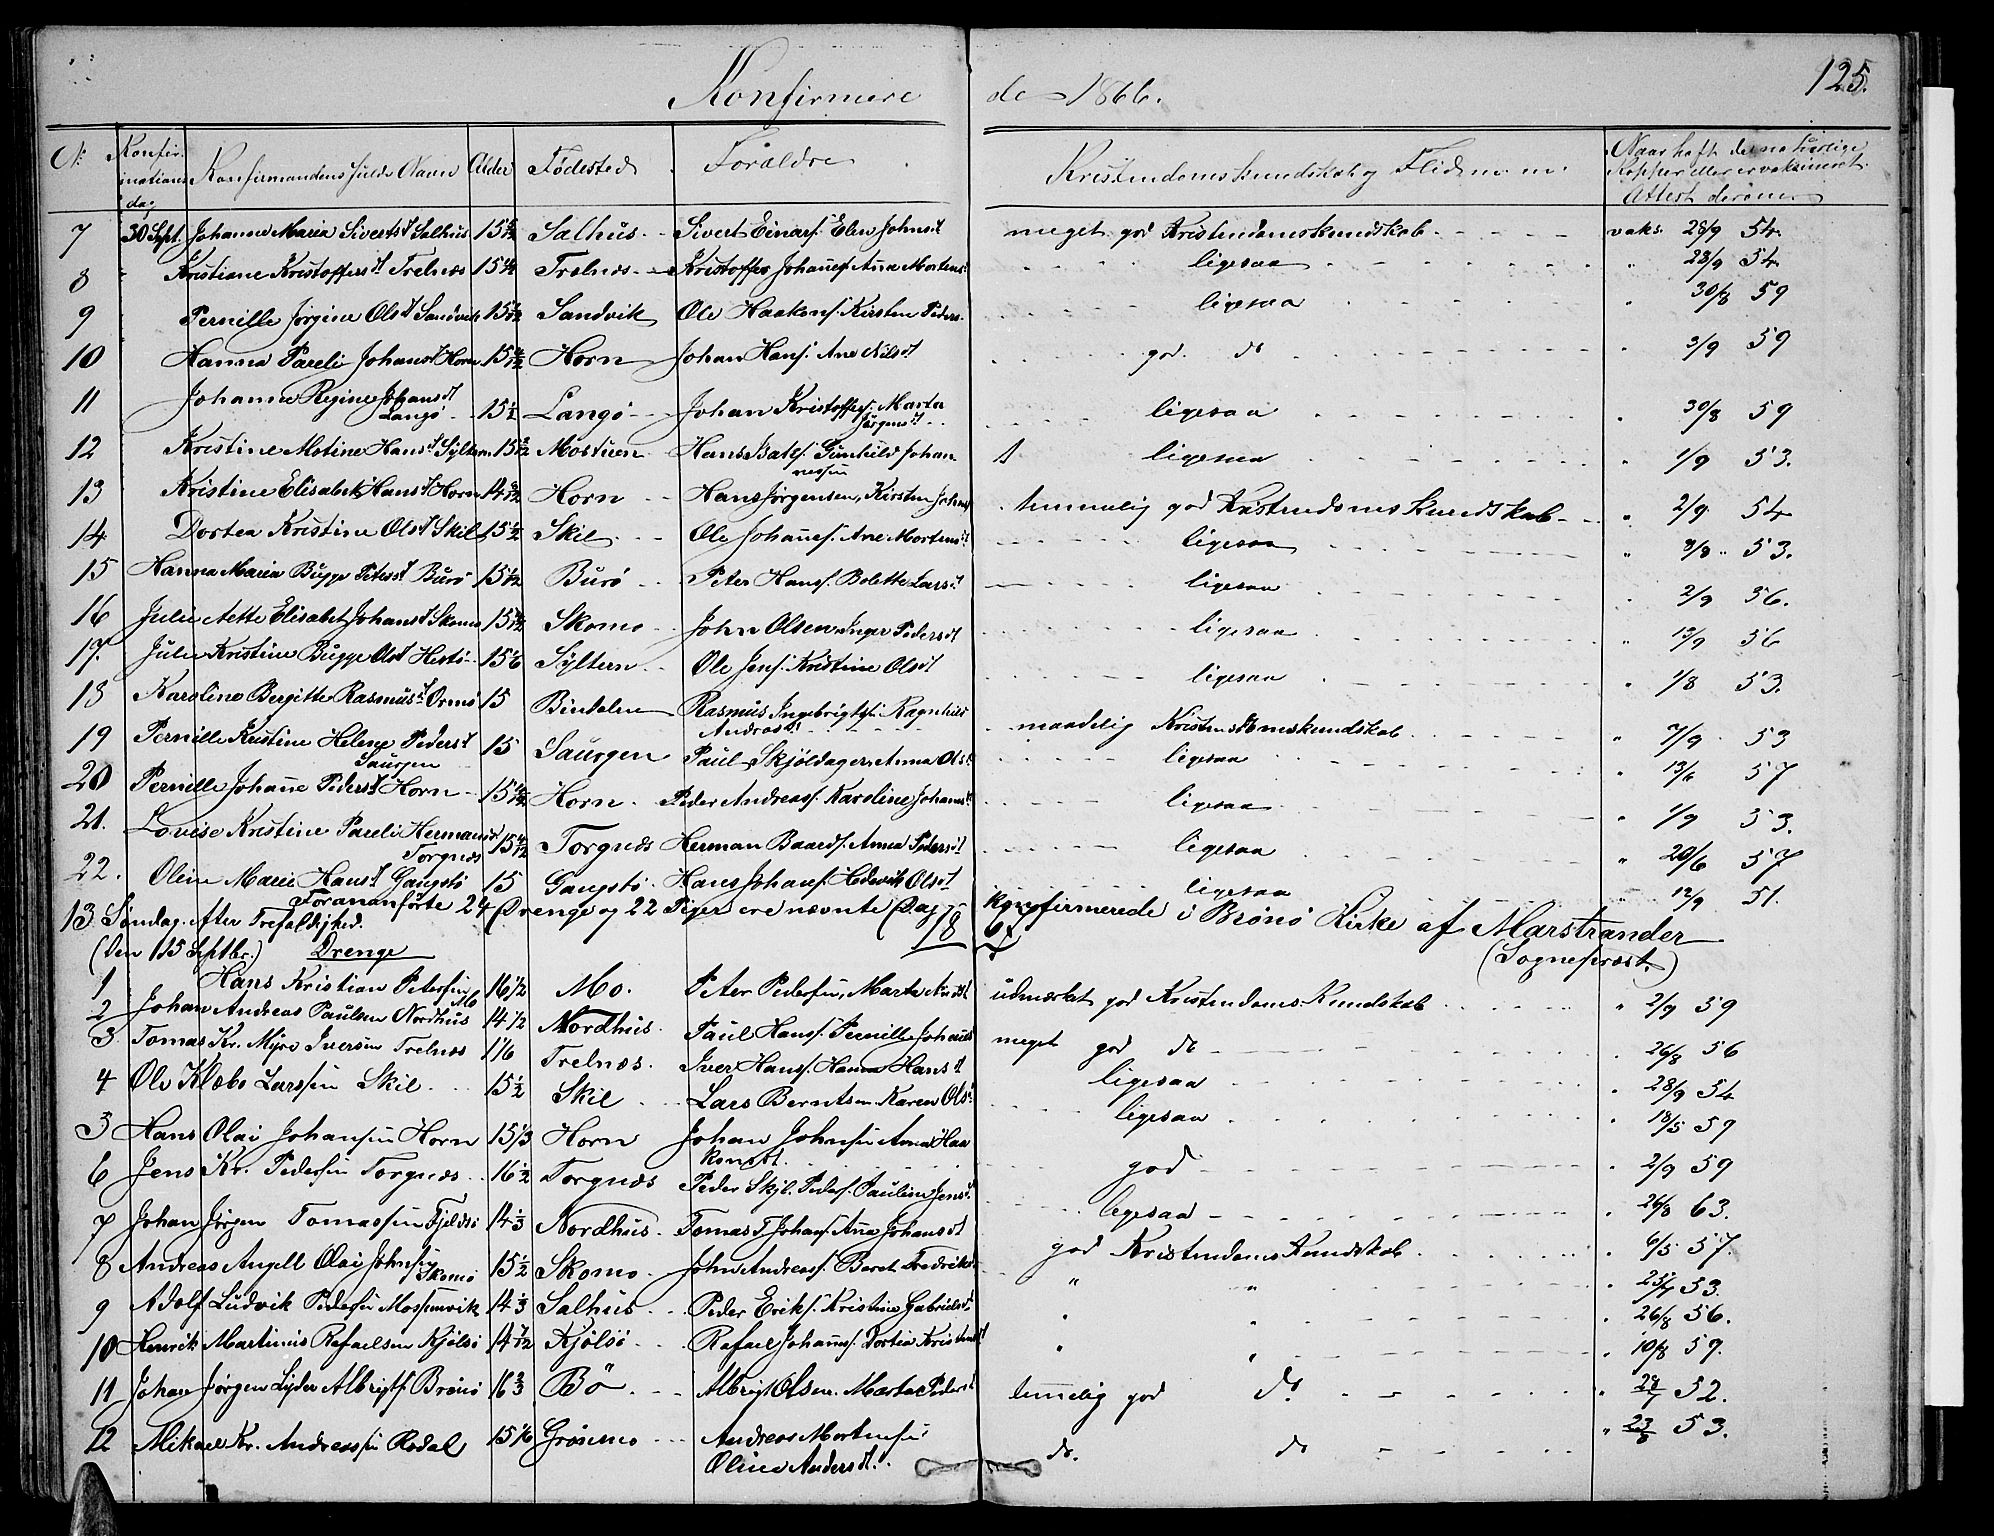 Konfirmere de 1866. 125.
No Konfirmations dag Konfirmandens fulde Navn Alder Fødested Forældre Kristendomskundskab og Flid m.m. Naar haft de naturlige Kopper eller er vaksineret. Attest derom
7 30 Sept. Johanne Maria Sivertsdt Salhus 15 Salhus Sivert Einars. Elen Johnsdt meget god Kristendomskundskab vaks. 28/9 54
8 Kristiane Kristoffersdt Trelnes Trelnes Kristoffer Johans. Ana Mortens ligesaa " 28/9 54
9 Pernille Jørgine Olsdt Sandvik Sandvik Ole Haakons. Kirsten Peders ligesaa " 30/8 59
10 Hanna Pareli Johansdt Horn Horn Johan Hans. Ane Nilsdt god do " 3/9 59
11 Johanna Regine Johansdt
Langø 15½ Langø Johan Kristoffers. Marta
Jørgensdt ligesaa " 30/8 59
12 Kristine Motine Hansdt Sÿltern Mostuen Hans Gunhild Johan
nessen ligesaa " 1/9 53.
13 Kristine Elisabet Hansdt Horn Horn Hans Jørgensen, Kirsten temmelig god Kristendomskundskab " 2/9 54
14 Dortea Kristine Olsdt Skil 15½ Skil Ole Johans. Ane Mortensdt ligesaa " 53.
15 Hanna Maria Bugge Petersdt Burø Burø Peter Hans. Bolette Larsdt ligesaa 2/9 56.
16 Julie Aette Elisabet Johansdt Skomo Skomo John Olsen Inger Pedersdt ligesaa " 56
17. Julie Kristine Bugge Olsdt Hestø 15 Sÿltern Ole Jens. Kristine Olsdt ligesaa " 1/8 53.
18 Karoline Bergitte Rasmusdt Ormø 15 Bindalen Rasmus Ingebrigts. Ragnhild
Andreasdt maadelig Kristendomskundskab " 7/9 53
19 Pernille Kristine Helene Pedersdt
Saurgen 15 Saurgen Paul Skjöldager. Anna Olsdt ligesaa " 13/6 57
20 Pernille Johane Pedersdt Horn Horn Peder Andreas. Karoline Johansdt ligesaa " 1/9 53.
21. Lovise Kristine Pareli Hermansdt
Torgnes Torgnes Herman Baards. Anna Pedersdt ligesaa " 20/6 57
22. Oline Marie Hansdt Gangstø 15 Gangstø Hans Johans. Hedevik Olsdt ligesaa " 12/9 51.
Forananførte 24 Drenge og 22 Piger ere nævnte Dag konfirmerede i Brønø Kirke af Marstrander
(Sognepræst.)
13 Søndag efter Trefoldighed.
(Den 15 Septbr.) Drenge 18 67
1 Hans Kristian Petersen
Mo 16½ Mo. Peter Pedersen, Marta udmærket god Kristendoms Kundskab " 2/9 59
2 Johan Andreas Paulsen Nordhus 14½ Nordhus. Paul Hans. Pernille Johansdt meget god do 26/8 56
3 Tomas Kr. Myre Iversen Trelnes Trelnes. Iver Hans. Hanna Hansdt ligesaa " 28/9 54
4 Ole Klæbo Larssen Skil 15½ Skil Lars Berntsen Karen Ols ligesaa " 18/5 59
5 Hans Olai Johansen Horn 15⅓ Horn Johan Johnsen Anna Haa
konsdt. god " 2/9 59
6 Jens Kr. Pedersen Torgnes 16½ Torgnes Peder Skjl. Peders. Pauline Jensdt ligesaa " 26/8 63.
7 Johan Jørgen Tomassen Fjeldsø 14⅓ Nordhus. Tomas T Johans. Ana Johansdt god Kristendoms Kundskab " 6/5 57.
8 Andreas Angell Olai Johnsen
Skomo 15½ Skomo John Andreas. Beret Fredriks " " 53.
9 Adolf Ludvik Pedersen Mossenvik 14⅓ Salhus Peder Eriks. Kristine Gabrielsdt " " " 26/8 56.
10 Henrik Martinus Rafaelsen Kjölsø Kjölsø Rafael Johans. Dortea Kristensdt " " " 10/8 59.
11 Johan Jørgen Lyder Albrigts. Brønø 16⅔ Bö Albrigt Olsen. Marta Pedersdt temmelig god do " 52.
12 Mikael Kr. Andreassen Rodal Grønmo Andreas Mortensen
Oline Andersdt. do. do " 53.